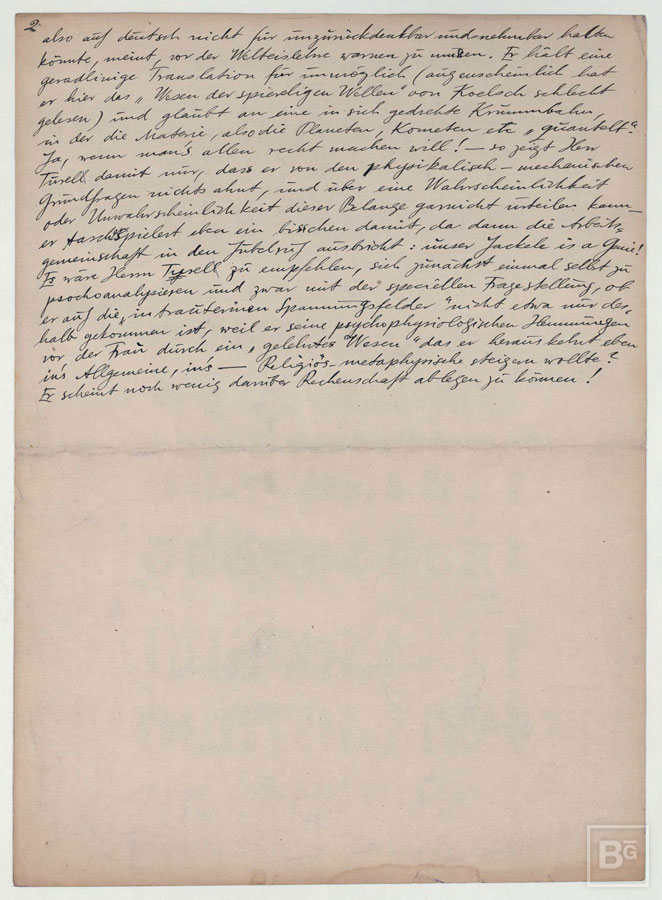 2
also auf deutsch nicht für unzurückdenkbar und-nehmbar halten
könnte, meint, vor der Welteislehre warnen zu müssen. Er hält eine
geradlinige Translation für unmöglich (augenscheinlich hat
er hier das „Wesen der spieraligen Wellen" von Koelsch schlecht
gelesen) und glaubt an eine in sich gedrehte Krummbahn,
in der die Materie, also die Planeten, Kometen etc „quantelt".
Ja, wenn man's allen recht machen will! — so zeigt Herr
damit nur, dass er von den physikalisch-mechanischen
Grundfragen nichts ahnt, und über eine Wahrscheinlichkeit
oder Unwahrscheinlichkeit dieser Belange garnicht urteilen kann—
er eben ein bisschen damit, da dann die Arbeits-
gemeinschaft in den Jubelruf ausbricht: unser Jackele is a Geni!
Es wäre Herrn zu empfehlen, sich zunächst einmal selbst zu
psychoanalysieren und zwar mit der speciellen Fragestellung, ob
er auf die „intrauterinen Spannungsfelder" nicht etwa nur des-
halb gekommen ist, weil er seine psychophysiologischen Hemmungen
vor der Frau durch ein „gelehrtes Wesen" das er herauskehrt eben
ins Allgemeine, ins — Religiös-metaphysische steigern wollte?
Er scheint noch wenig darüber Rechenschaft ablegen zu können!
BG